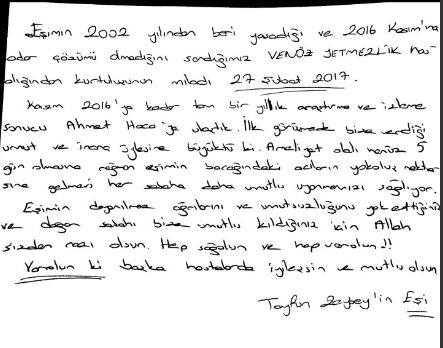 Eşimin 2002 yılından beri yaşadığı ve 2016 Kasım'ına
kadar çözümü olmadığını sandığımız VENÖZ YETMEZLİK has-
talığından kurtuluşunun miladı 27 Şubat 2017.
Kasım 2016'ya kadar tam bir yıllık araştırma ve izleme
sonucu Ahmet Hoca'ya ulaştık. İlk görüşmede bize verdiği
umut ve inanç öylesine büyüktü ki. Ameliyat olalı henüz 5
gün olmasına rağmen eşimin bacağındaki acıların yokoluş nokta-
sına gelmesi her sabaha daha mutlu uyanmamızı sağlıyor.
Eşimin dayanılmaz ağrılarını ve umutsuzluğunu yok ettiğiniz
ve doğan sabahı bize mutlu kıldığınız için Allah
sizden razı olsun. Hep sağolun ve hep varolun!!
Varolun ki başka hastalarda iyileşsin ve mutlu olsun
Tayfun 'in Eşi